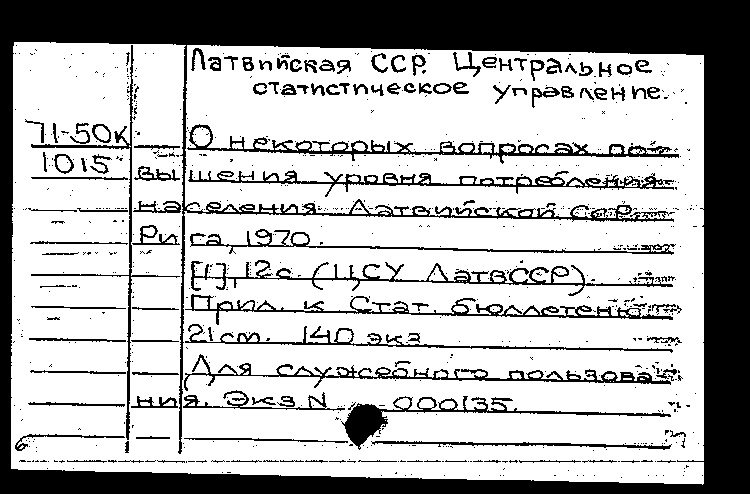 Латвийская ССР. Центральное
статистическое управление.
71-50к О некоторых вопросах по-
1015 вышения уровня потребления
населения Латвийской ССР.
Рига, 1970.
[1], 12с. (ЦСУ ЛатвССР).
Прил. к Стат. бюллетеню
21см. 140 экз
Для служебного пользова-
ния. Экз N 000135.